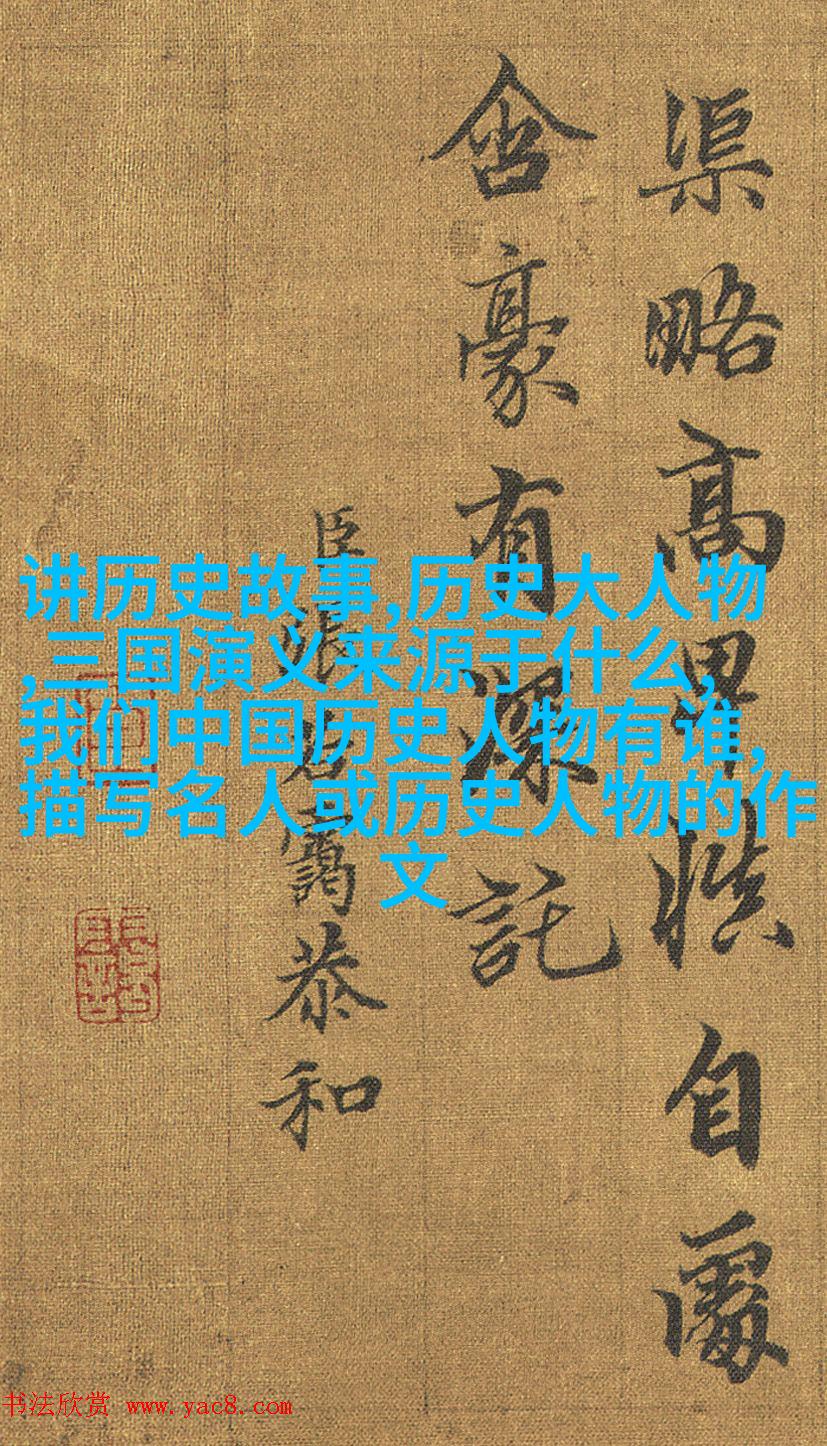 渠略高卑慎自處
含豪有深託
臣張若靄恭和
讲历史故事,历史大人物
,三国演义来源于什么,
我们中国历史人物有谁,
描写名人或历史人物的作
文
书法欣赏 www.yac8.com